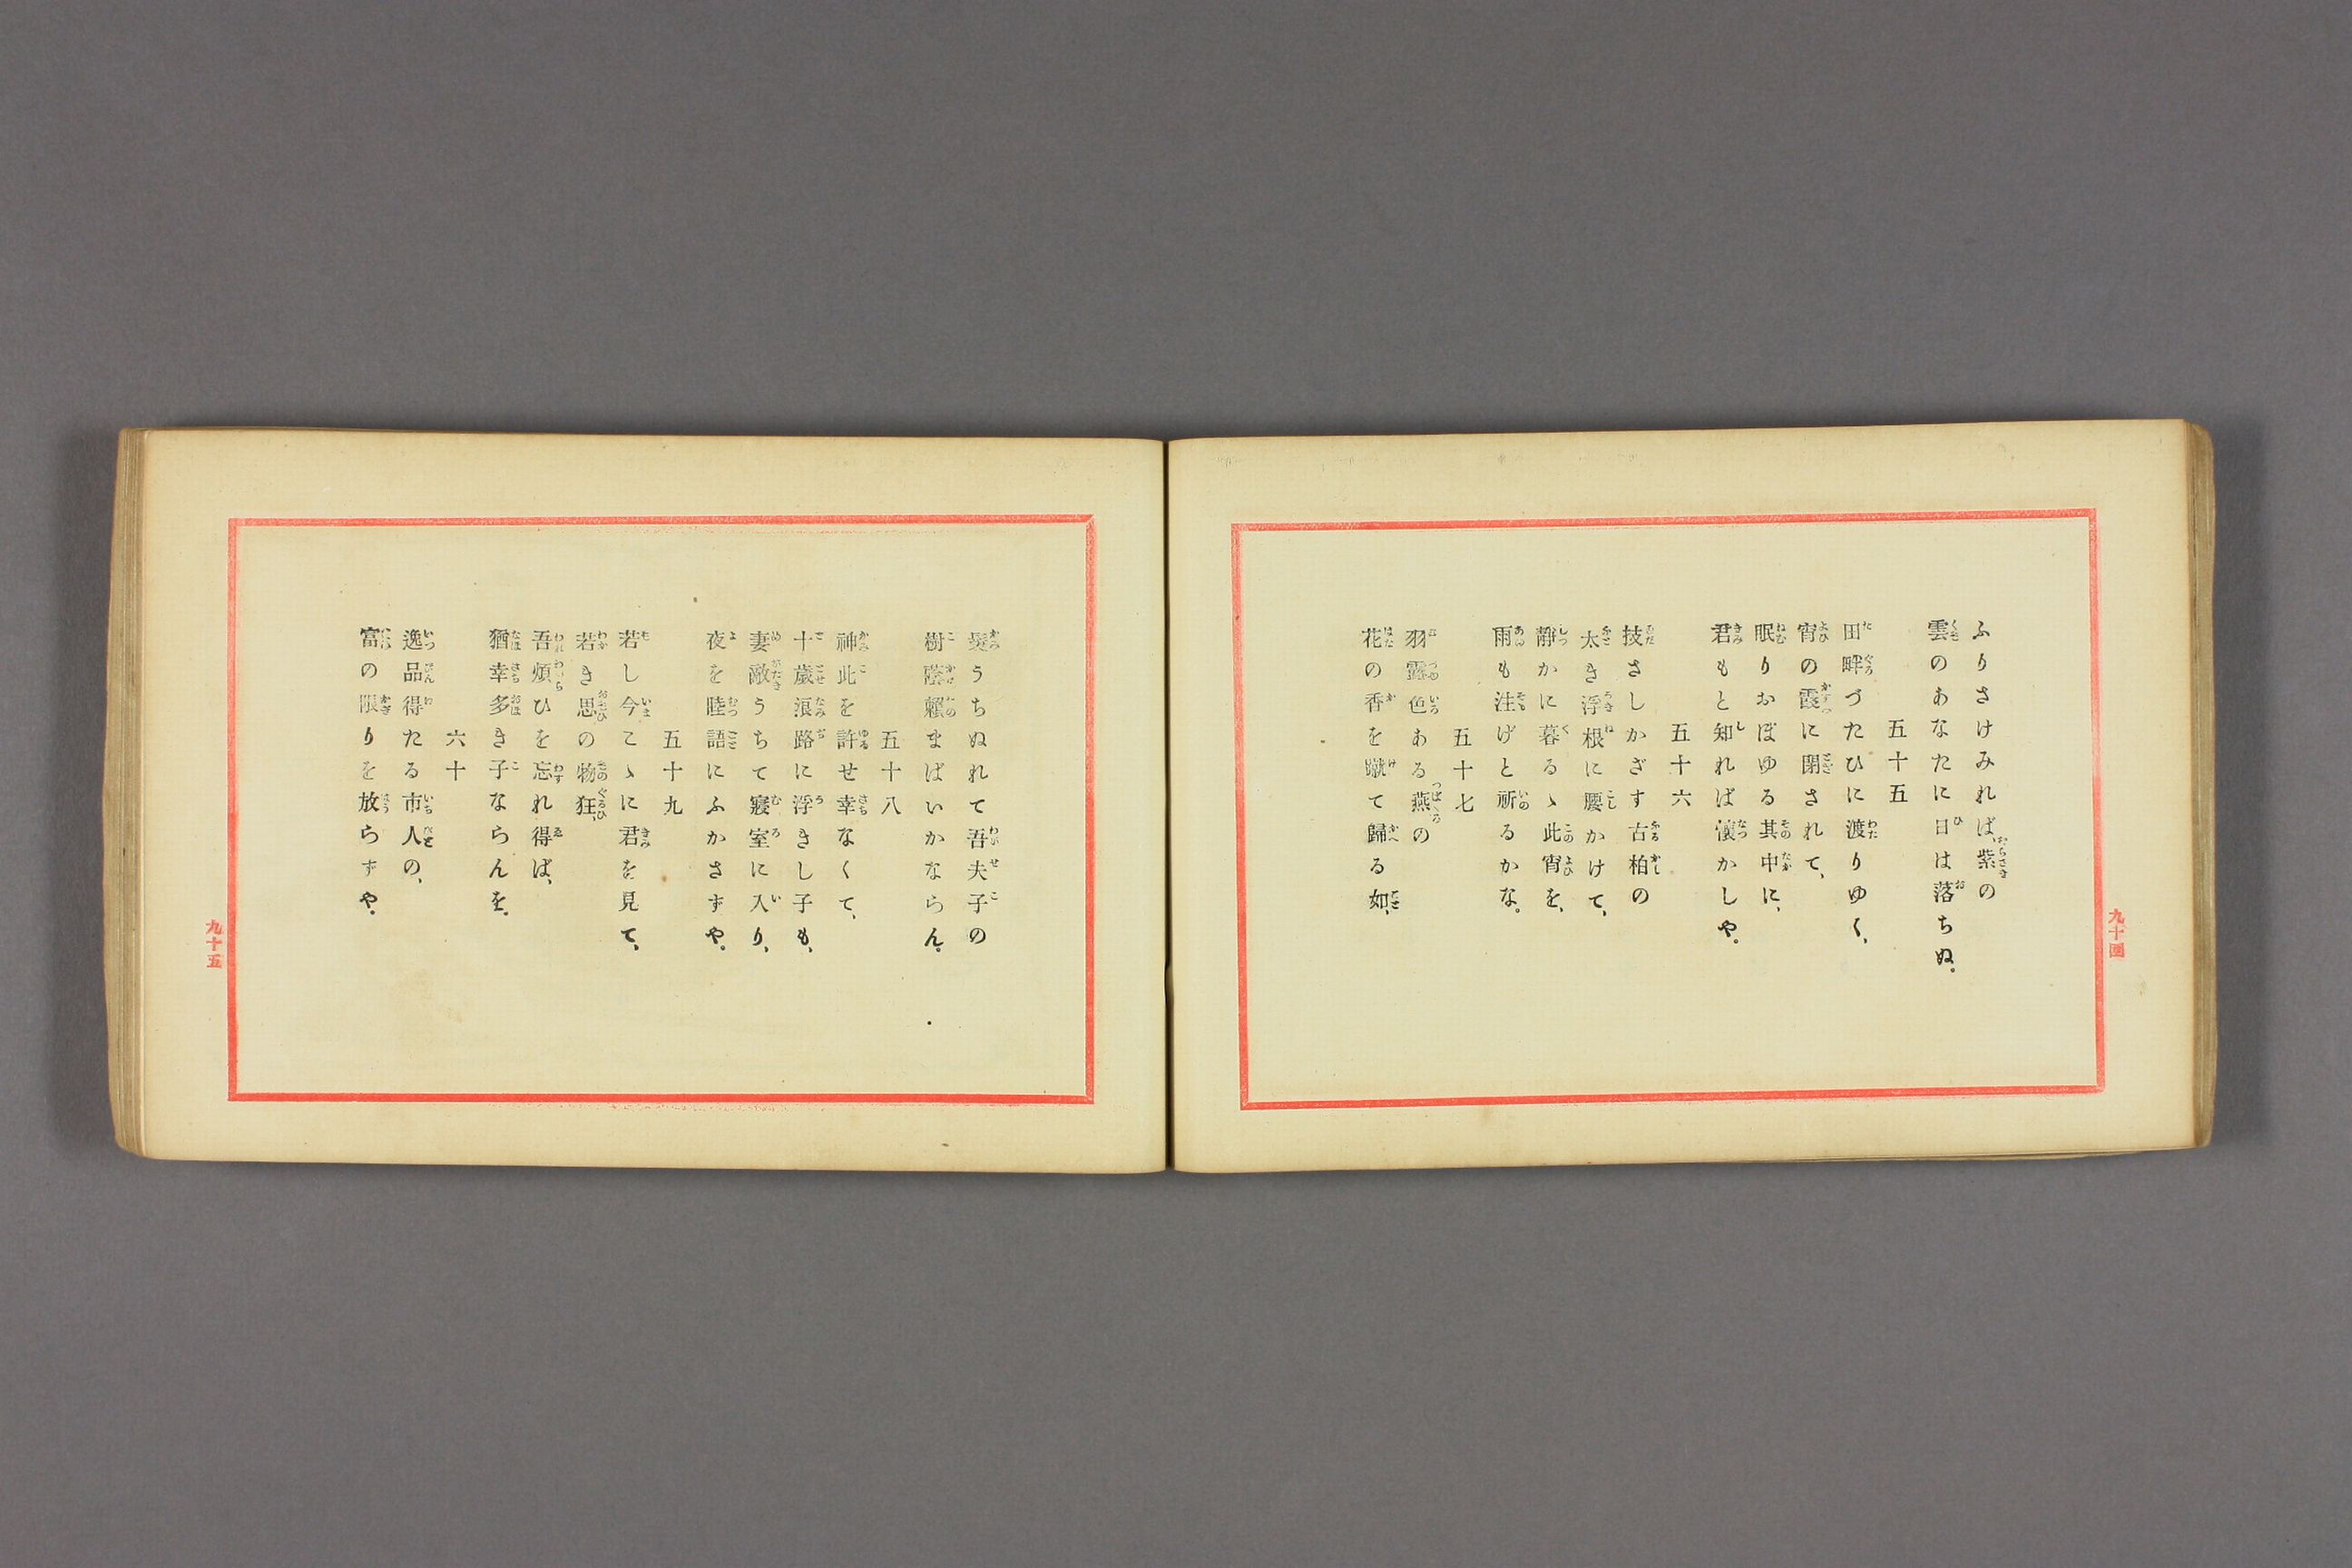 ふりさけみれば、紫の
雲のあなたに日は落ちぬ。
五十五
田畔づたひに渡りゆく、
宵の霞に閉されて、
眠りおぼゆる其中に、
君もと知れば懐かしや。
五十六
技さしかざす古柏の
太き浮根に腰かけて、
靜かに暮るゝ此宵を、
雨も注げと祈るかな。
五十七
羽露色ある燕の
花の香を蹴て歸る如、
九十四
髮うちぬれて吾夫子の
樹蔭賴まばいかならん。
五十八
神此を許せ幸なくて、
十歲浪路に浮きし子も、
妻敵うちて寢室に入り、
夜を睦語にふかさずや。
五十九
若し今こゝに君を見て、
若き思の物狂、
吾煩ひを忘れ得ば、
猶幸多き子ならんを。
六十
逸品得たる市人の、
富の限りを放らずや。
九十五